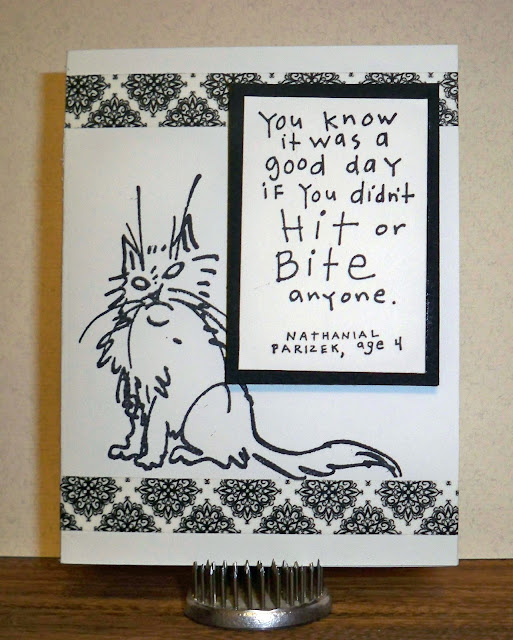 You know
it was a
good day
if You didn't
Hit or
Bite
anyone.
NATHANIAL
PARIZEK, age 4